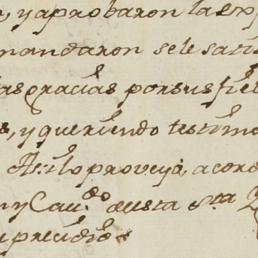 , y aprobaron las exp
mandaron se le sati
las gracias por su fiel
s, y queriendo testimo
Asi lo proveyó, acord
n y Cavdo de esta Sta
presidio